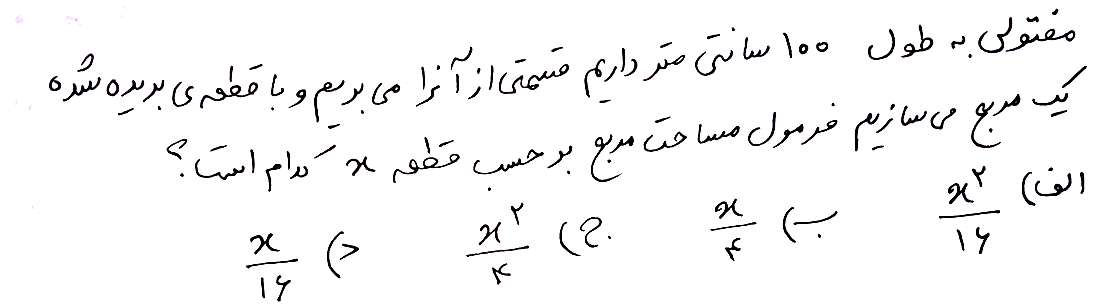 مفتولی به طول ۱۰۰ سانتی متر داریم قسمتی از آنرا می بریم و با قطعه ی بریده شده
یک مربع می سازیم فرمول مساحت مربع بر حسب قطعه x کدام است؟
الف) x^۲/۱۶ ب) x/۴ ج) x^۲/۴ د) x/۱۶